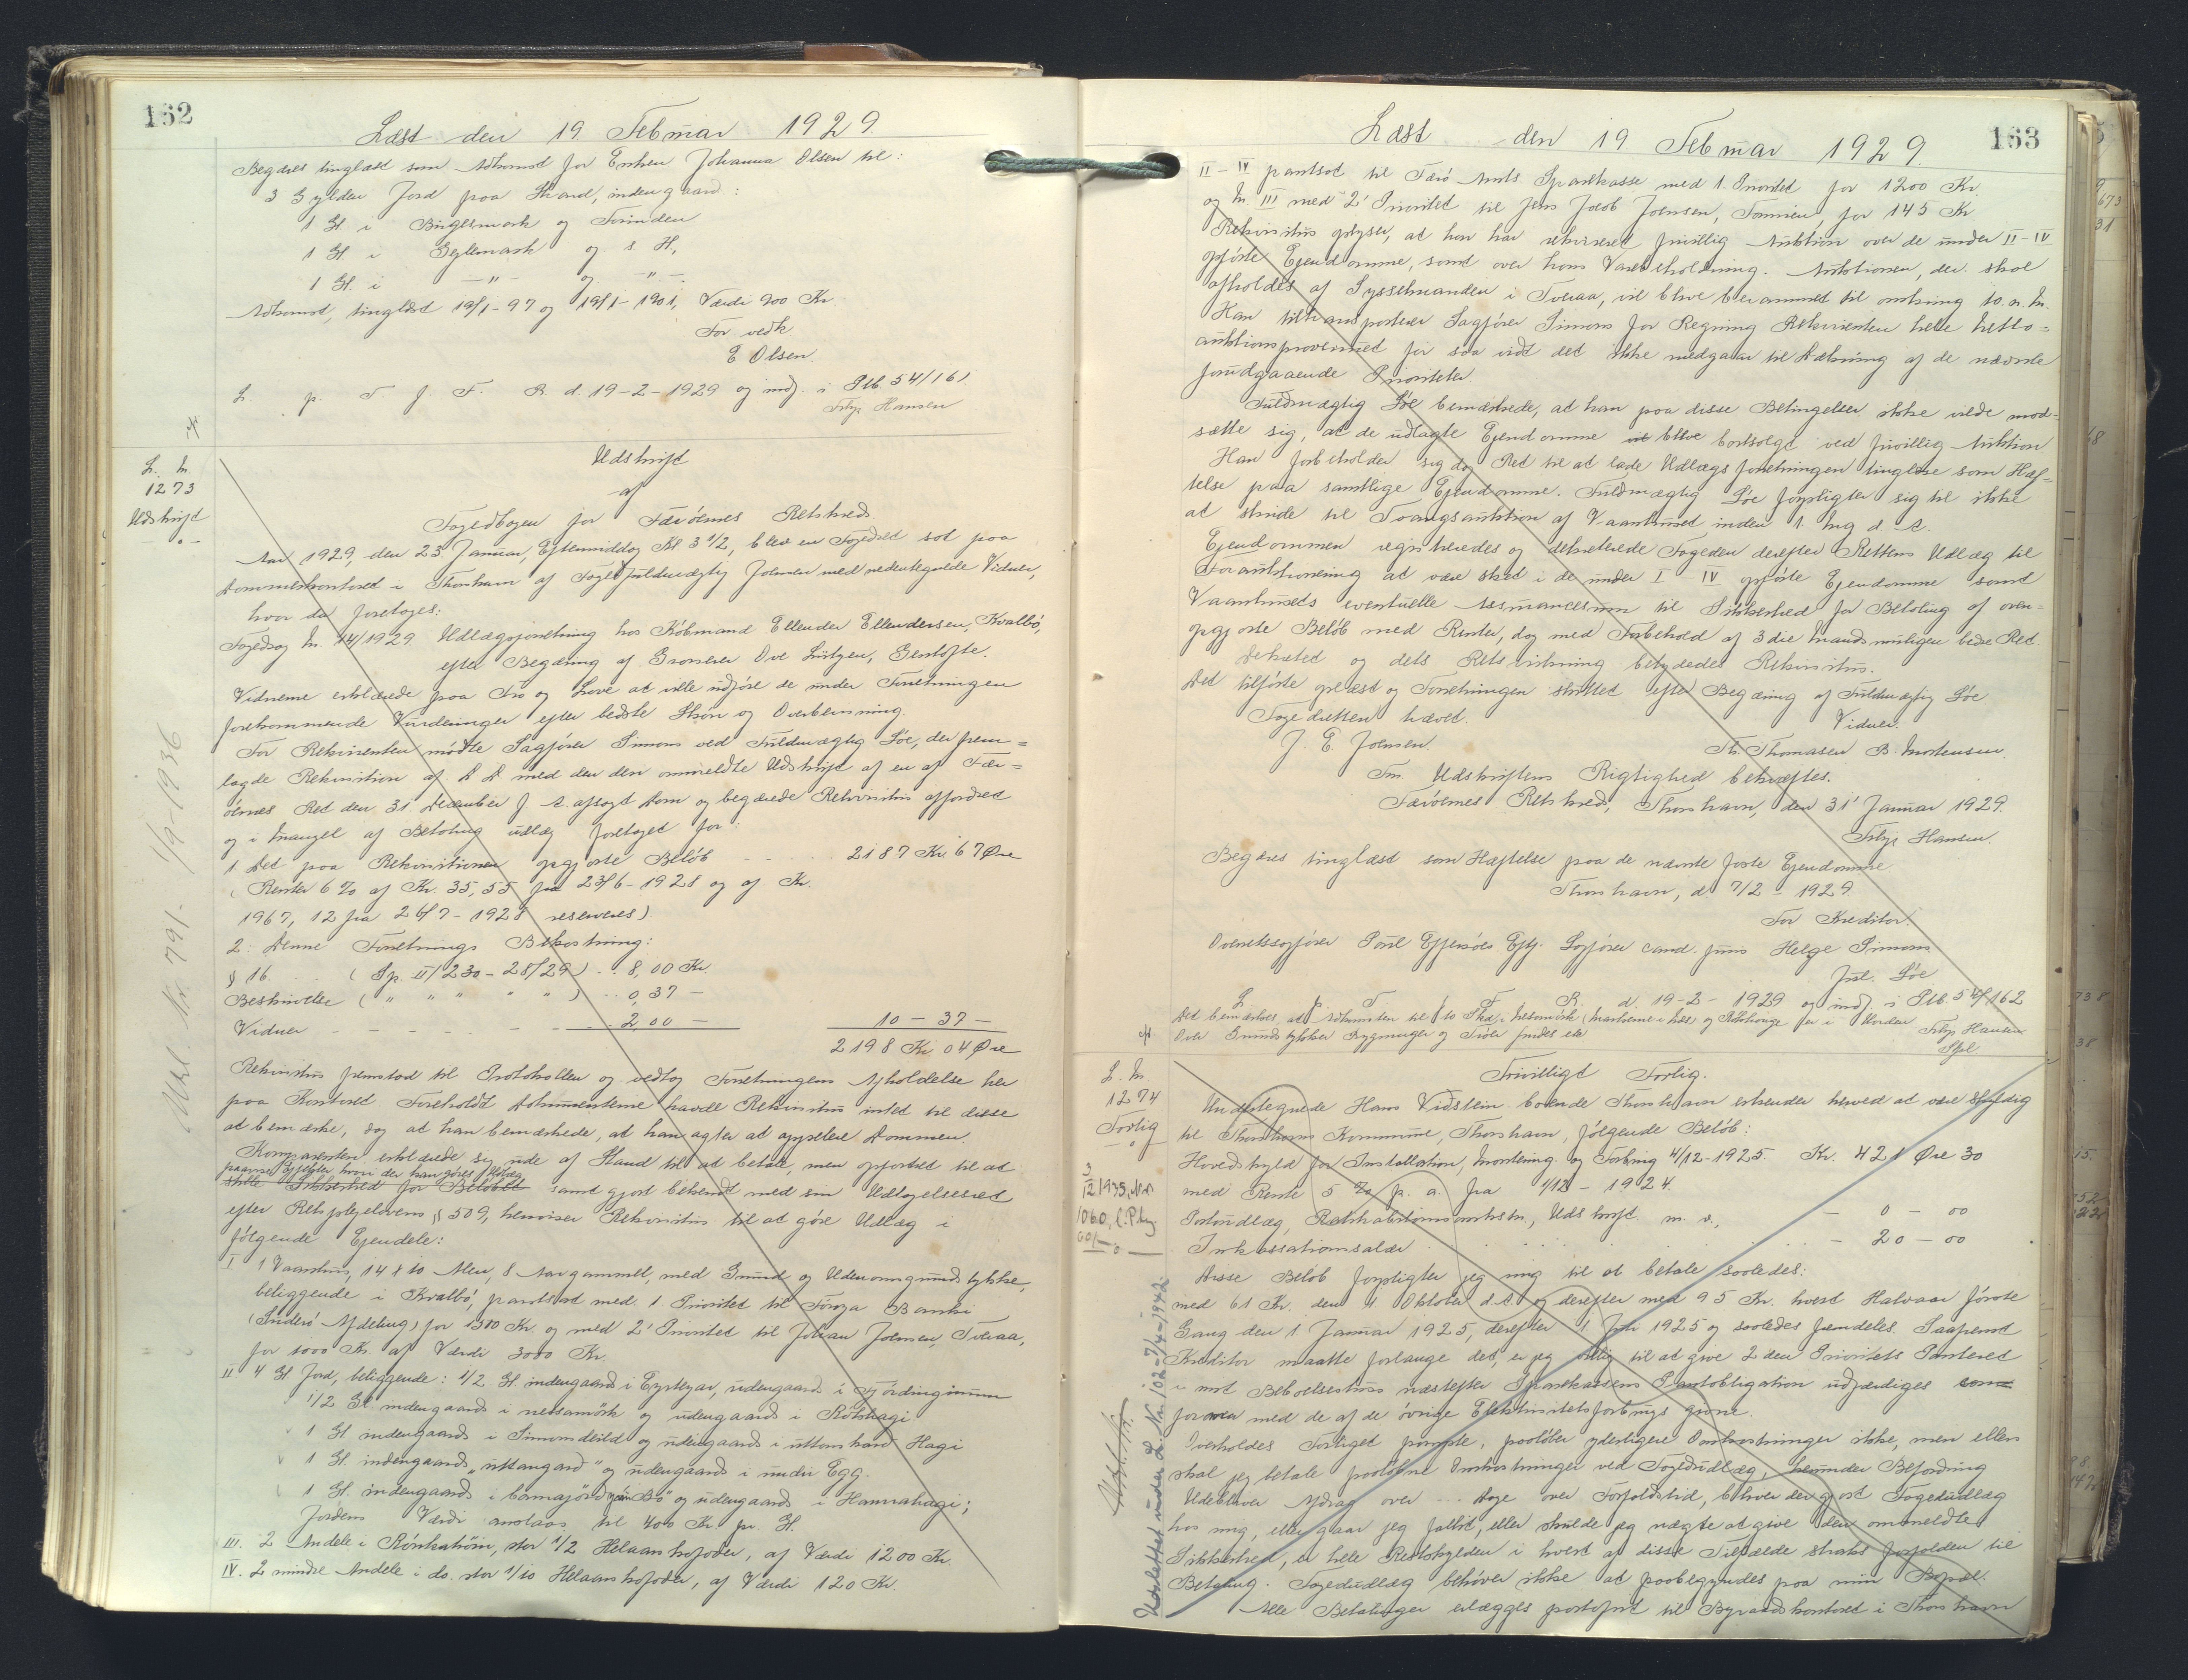 162
Læst den 19 Februar 1929.
Begæres tinglæst som Adkomst for Enken Johanna Olsen til:
3 Gylden Jord paa Strand, indengaard:
1 Gl. i Bugesmark og Torinden
1 Gl. i Geylemark og s. H.,
1 Gl. i —"— og —"—
Adkomst, tinglæst 19/1-97 og 19/1-1901, Værdi 900 Kr.
For vedk
E Olsen.
L. p. T. f. F. R. d. 19-2-1929 og indf. i Ptb 54/161.
Hansen
L. Nr.
1273
Udskrift
Udskrift
af
Fogedbogen for Færöernes Retskreds
Aar 1929, den 23 Januar, Eftermiddag Kl 3 1/2, blev en Fogedret sat paa
Dommerkontoret i Thorshavn af Fogedfuldmægtig Joensen med nedentegnede Vidner,
hvor da foretoges:
Fogedsag Nr. 14/1929. Udlægsforretning hos Köbmand Ellendur Ellendersen, Kvalbö,
efter Begæring af Grosserer Ove Lützen, Gentofte.
Vidnerne erklærede paa Tro og Love at ville udföre de under Forretningen
forekommende Vurderinger efter bedste Skön og Overbevisning.
For Rekvirenten mödte Sagförer Simons ved Fuldmægtig Löe, der frem=
lagde Rekvisition af D D med den deri ommeldte Udskrift af en af Fær=
öernes Ret den 31 December f. A. afsagt Dom og begærede Rekvisitus affordret
og i Mangel af Betaling udlæg foretaget for:
1 Det paa Rekvisitionen opgjorte Belöb 2187 Kr. 67 Øre
(Renter 6 % af Kr. 35,55 fra 23/6-1928 og af Kr.
1967,12 fra 26/7-1928 reserveres)
2: Denne Forretnings Bekostning:
§ 16. (Sp. II/230-28/29) 8,00 Kr
Beskrivelse ( " " " " " ) 0,37 —
Vidner 2 00 — 10 — 37 —
2198 Kr 04 Øre
Rekvisitus fremstod til Protokollen og vedtog Forretningens Afholdelse her
paa Kontoret. Foreholdt Dokumenterne havde Rekvisitus intet til disse
at bemærke, dog at han bemærkede, at han agter at appellere Dommen.
Komparenten erklærede sig ude af Stand til at betale, men opfordret til at
paavise Ejendele hvori der kan göres Udlæg
stille Sikkerhed for Belöbet samt gjort bekendt med sin Udtagelsesret
efter Retsplejelovens § 509, henviser Rekvisitus til at göre Udlæg i
fölgende Ejendele:
I 1 Vaanhus, 14 x 10 Alen, 8 Aar gammelt, med Grund og Udenomsgrundstykke,
beliggende i Kvalbö, pantsat med 1 Prioritet til Föroya Banki
(Suderö Afdeling) for 1380 Kr. og med 2' Prioritet til Johan Joensen, Tveraa,
for 1000 Kr. af Værdi 3000 Kr.
II 4 Gl. Jord, beliggende: 1/2 Gl. indengaards i Eysteyar, udengaards i Fördinginum
1/2 Gl. indengaards i nersamörk og udengaards i Rótshagi
1 Gl. indengaards i Simunsdeild og udengaards i uttanhard Hagi
1 Gl. indengaards "uttangard" og udengaards i undir Egg.
1 Gl. indengaards i og udengaards i Hannahagi;
Jordens Værdi anslaas til 400 Kr. pr. Gl.
III. 2 Andele i Rónkatröin, stor 1/2 Helaars Kofoder, af Værdi 1200 Kr.
IV. 2 mindre Andele i do. stor 1/10 Helaars Kofoder, af Værdi 120 Kr.
Udsl. Nr. 791. 1/9-1936
163
Læst den 19 Februar 1929.
II-IV pantsat til Færö Amts Sparekasse med 1. Prioritet for 1200 Kr.
og Nr. III med 2' Prioritet til Jens Jacob Joensen, for 145 Kr
Rekvisitus oplyser, at han har rekvireret frivillig Auktion over de under II-IV
opförte Ejendomme, samt over hans Varebeholdning. Auktionen, der skal
afholdes af Sysselmanden i Tveraa, vil blive berammet til omkring 10. n. M.
Han tiltransporterer Sagförer Simons for Regning Rekvirenten hele Netto=
auktionsprovenuet for saa vidt det ikke medgaar til Dækning af de nævnte
forudgaaende Prioriteter.
Fuldmægtig Löe bemærkede, at han paa disse Betingelser ikke vilde mod=
sætte sig, at de udlagte Ejendomme vil blive bortsolgt ved frivillig Auktion
Han forbeholder sig dog Ret til at lade Udlægsforretningen tinglæse som Hæf=
telse paa samtlige Ejendomme. Fuldmægtig Löe forpligter sig til ikke
at skride til Tvangsauktion af Vaanhuset inden 1 Aug d. A.
Ejendommen registreredes og dekreterede Fogeden derefter Rettens Udlæg til
Forauktionering at være sket i de under I-IV opförte Ejendomme samt
Vaanhusets eventuelle Assurancesum til Sikkerhed for Betaling af oven=
opgjorte Belöb med Renter, dog med Forbehold af 3die Mands muligen bedre Ret
Dekretet og dets Retsvirkning betydedes Rekvisitus.
Det tilförte oplæst og Forretningen sluttet efter Begæring af Fuldmægtig Löe
Fogedretten hævet. Vidner.
J. E. Joensen. Th. Thomasen B. Mortensen.
Udskriftens Rigtighed bekræftes.
Færöernes Retskreds, Thorshavn, den 31' Januar 1929.
Hansen.
Begæres tinglæst som Hæftelse paa de nævnte faste Ejendomme
Thorshavn, d. 7/2 - 1929.
For Kreditor.
Overretssagförer Poul Effersöes Eftf. Sagförer cand. juris Helge Simons
Löe
L. p. T. f. F. R. d. 19-2-1929 og indf. i Ptb. 54/162
Hansen
Over Grundstykker Bygninger og Tröer findes ette
L. Nr.
1274
Forlig
3/12 1935, Nr.
1060,
Frivilligt Forlig.
Undertegnede Hans Vidstein boende Thorshavn erkender herved at være skyldig
til Thorshavns Kommune, Thorshavn, fölgende Belöb:
Hovedskyld for Installation, Montering og Forbrug 4/12-1925. Kr. 421 Øre 30
med Rente 5 % p. a. fra 1/12 - 1924.
Portoudlæg, Udskrift m. v., — 0 — 00
Inkassationssalær — 20 — 00
Disse Belöb forpligter jeg mig til at betale saaledes:
med 61 Kr. den 1 Oktober d. A. og derefter med 95 Kr. hvert Halvaar förste
Gang den 1 Januar 1925, derefter 1 Juli 1925 og saaledes fremdeles. Saafremt
Kreditor maatte forlange det, er jeg villig til at give 2den Prioritets Panteret
i mit Beboelseshus næstefter Sparekassens Pantobligation udfærdiges som
foran med de af de övrige Elektricitetsforbrugs givne.
Overholdes Forliget pünste, paalöber yderligere Omkostninger ikke, men ellers
skal jeg betale paalöbne Omkostninger ved Fogedudlæg, herunder Befordring
Udebliver Afdrag over --- Dage over Forfaldstid, bliver der gjort Fogedudlæg
hos mig, eller gaar jeg fallit, eller skulde jeg nægte at give den ommeldte
Sikkerhed, er hele Restskylden i hvert af disse Tilfælde straks forfalden til
Betaling. Fogedudlæg behöver ikke at paabegyndes paa min Bopæl.
Alle Betalinger erlægges portofrit til Byraadskontoret i Thorshavn
Udslettet under L. Nr. 102 - 7/4-1942.